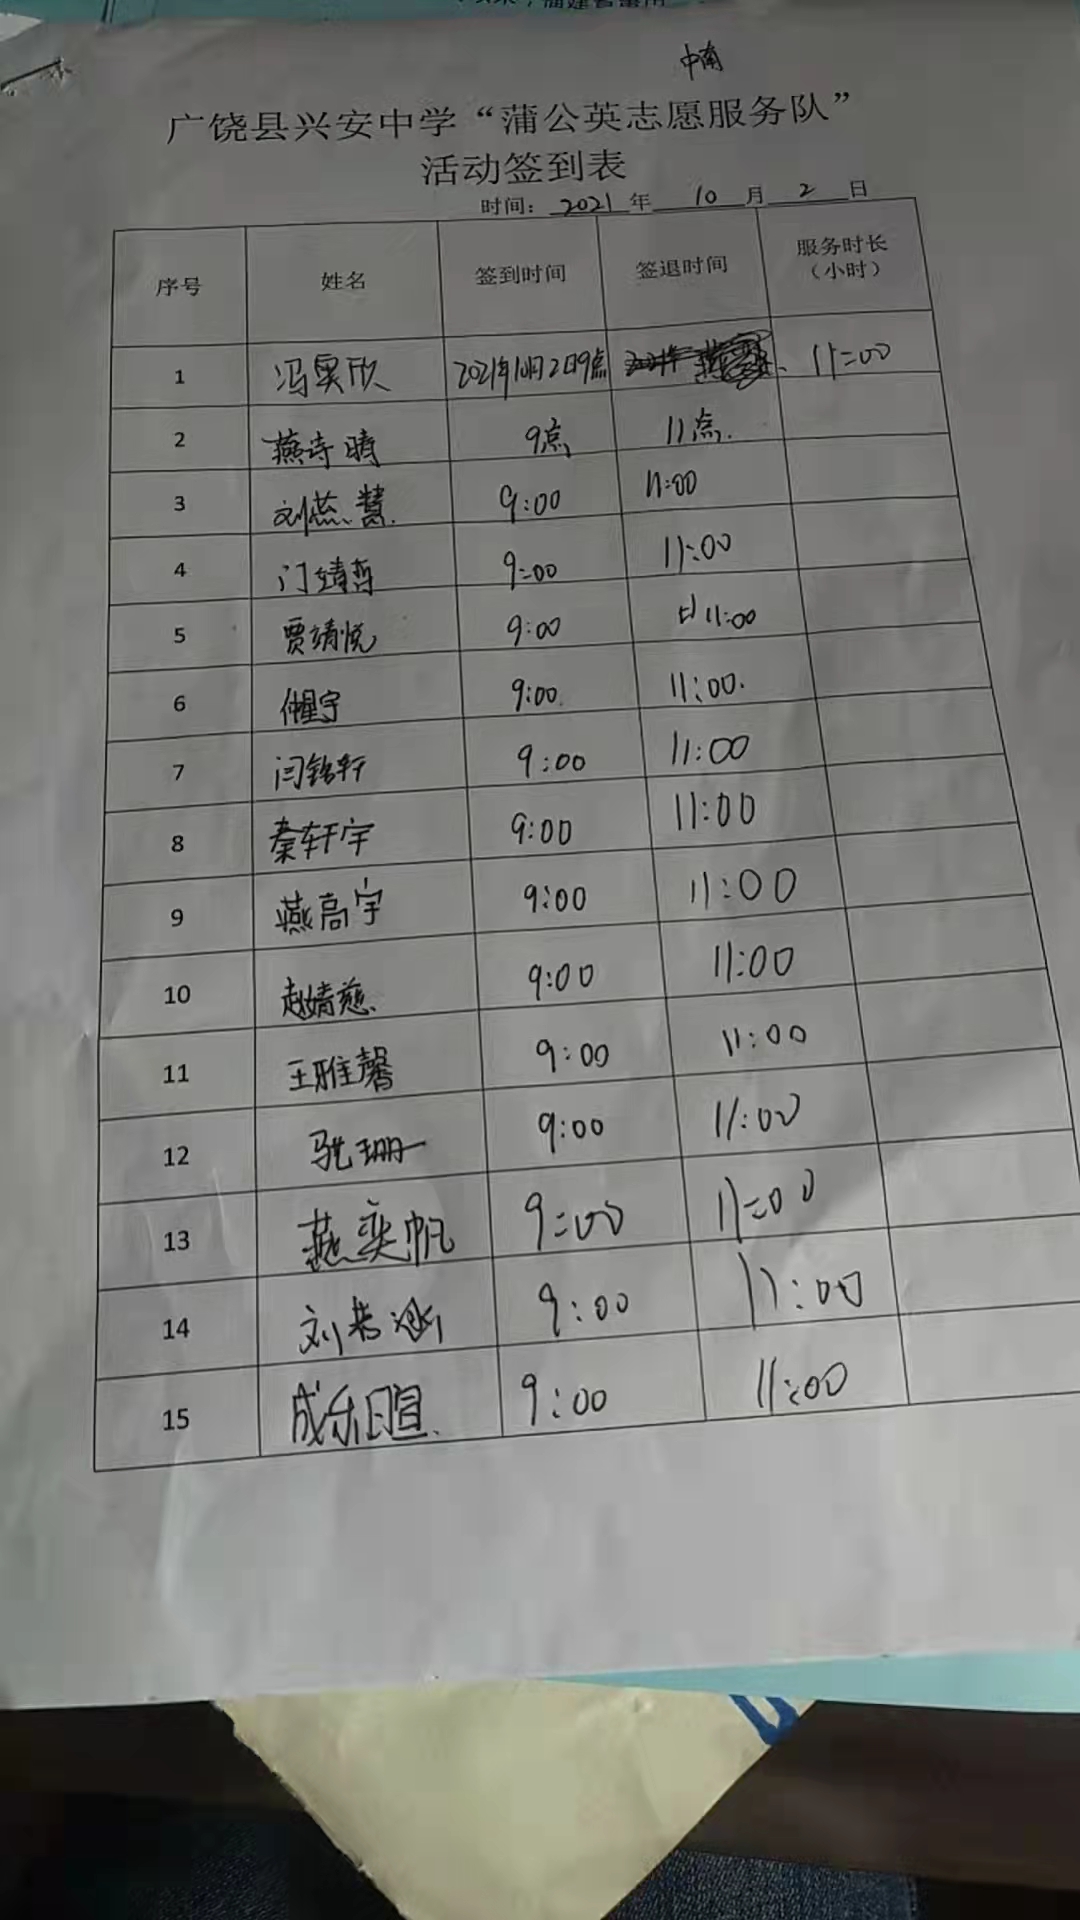 中南
广饶县兴安中学“蒲公英志愿服务队”
活动签到表
时间：2021年10月2日
序号 姓名 签到时间 签退时间 服务时长（小时）
1 冯昊欣 2021年10月2日9点 11:00
2 燕诗晴 9点 11点.
3 刘燕慧. 9:00 11:00
4 门靖哲 9:00 11:00
5 贾靖悦 9:00 11:00
6 仲星宇 9:00. 11:00.
7 闫铭轩 9:00 11:00
8 秦轩宇 9:00 11:00
9 燕高宇 9:00 11:00
10 赵婧慈. 9:00 11:00
11 王雅馨 9:00 11:00
12 珊 9:00 11:00
13 燕奕帆 9:00 11:00
14 刘 9:00 11:00
15 成乐暄. 9:00 11:00